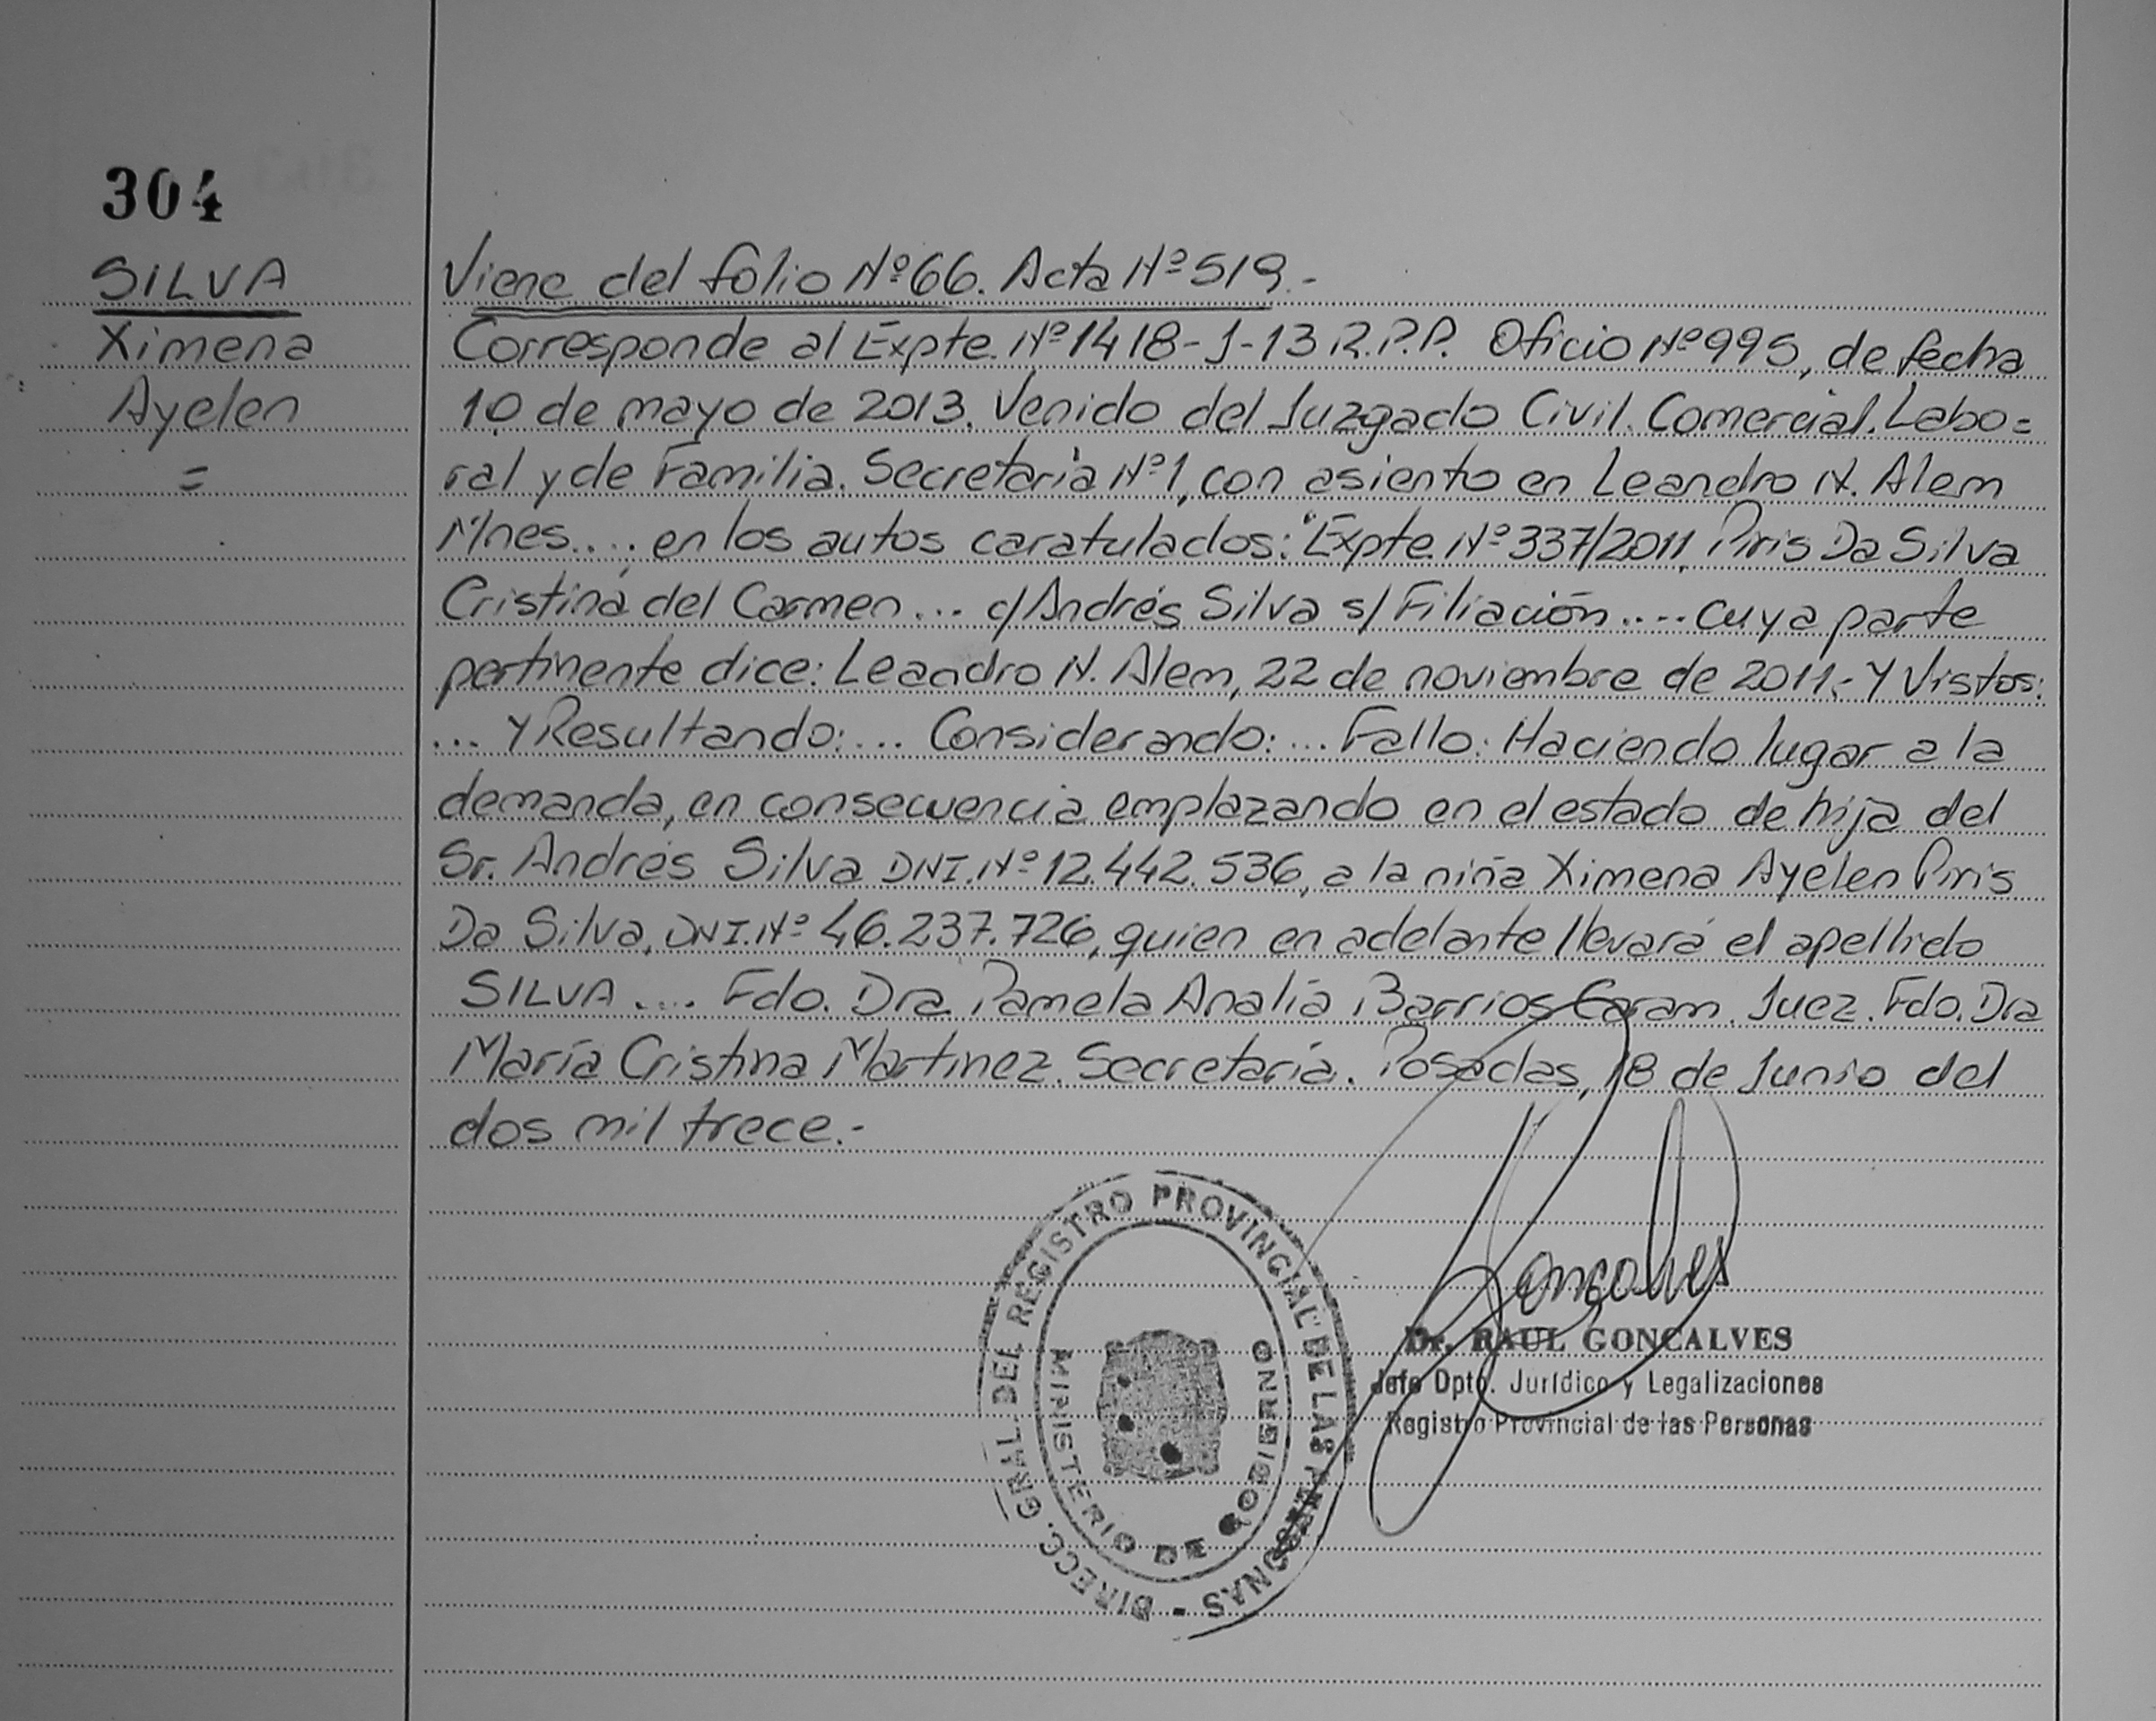 304
SILVA
Ximena
Ayelen
=
Viene del folio Nº 66. Acta Nº 519.-
Corresponde al Expte. Nº 1418-J-13 R.P.P. Oficio Nº 995, de fecha
10 de mayo de 2013. Venido del Juzgado Civil. Comercial. Labo=
ral y de Familia. Secretaria Nº 1, con asiento en Leandro N. Alem
Mnes.... en los autos caratulados: "Expte. Nº 337/2011, Piris Da Silva
Cristina del Carmen... c/Andrés Silva s/Filiación.... cuya parte
pertinente dice: Leandro N. Alem, 22 de noviembre de 2011.- Y Vistos:
... Y Resultando:... Considerando:... Fallo: Haciendo lugar a la
demanda, en consecuencia emplazando en el estado de hija del
Sr. Andrés Silva DNI. Nº 12.442.536, a la niña Ximena Ayelen Piris
Da Silva, DNI. Nº 46.237.726, quien en adelante llevará el apellido
SILVA.... Fdo. Dra. Pamela Analía Barrios Caram. Juez. Fdo. Dra
María Cristina Martinez. Secretaria. Posadas, 18 de Junio del
dos mil trece.-
DIRECC. GRAL. DEL REGISTRO PROVINCIAL DE LAS PERSONAS -
MINISTERIO DE GOBIERNO
Goncalves
Dr. RAUL GONCALVES
Jefe Dpto. Jurídico y Legalizaciones
Registro Provincial de las Personas